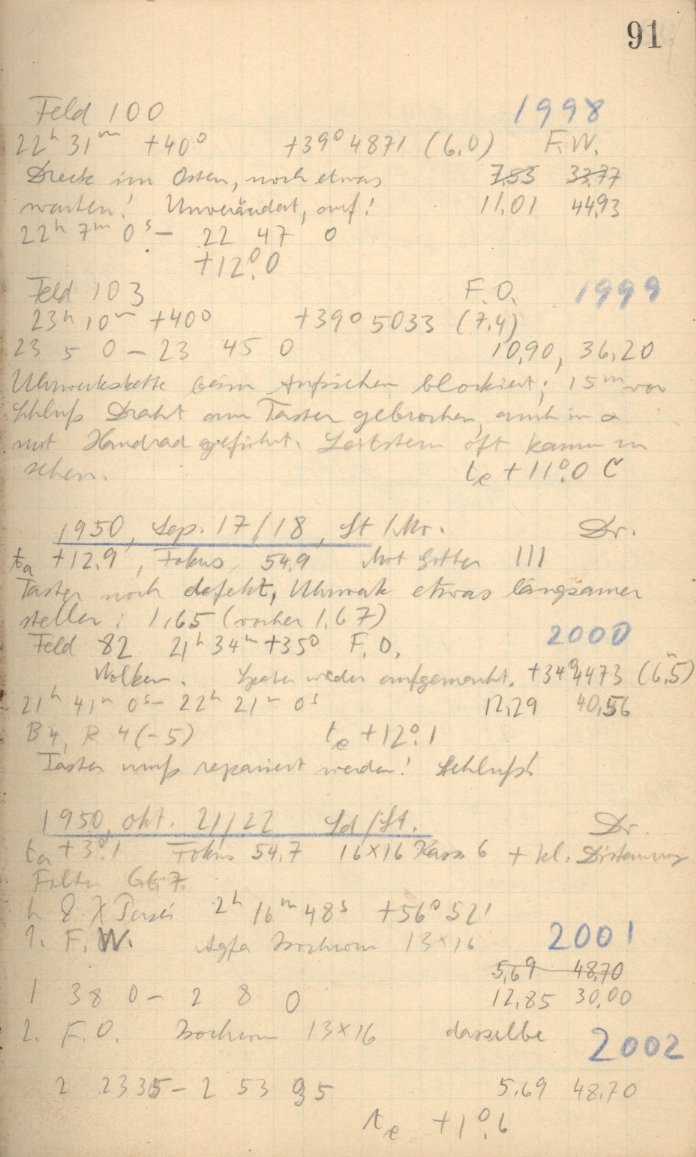 91
Feld 100 1998
22h 31m +40° +39°4871 (6,0) F.W.
Dreck im Osten, noch etwas 7,85 33,77
warten! Unverändert, auf! 11,01 44,93
22h 7m 0s — 22 47 0
+12°,0
Feld 103 F.O. 1999
23h 10m +40° +39°5033 (7,4)
23 5 0 — 23 45 0 10,90, 36,20
Uhrwerkskette beim Aufziehen blockiert; 15m vor
Schluß Draht am Taster gebrochen, auch in α
mit Handrad geführt. Leitstern oft kaum zu
sehen. te +11°,0 C
1950, Sep. 17/18, St/Mr. Dr.
ta +12,9°, Fokus 54,9 Mit Gitter III
Taster noch defekt, Uhrwerk etwas langsamer
stellen: 1,65 (vorher 1,67)
Feld 82 21h 34m +35° F.O. 2000
Wolken. Später wieder aufgemacht. +34°4473 (6,5)
21h 41m 0s — 22h 21m 0s 12,29 40,56
B4, R4(-5) te +12°,1
Taster muß repariert werden! Schluß!
1950, Okt. 21/22 Sd/St. Dr.
ta +3°,1 Fokus 54,7 16×16 Kass. 6 + kl.
Filter GG7
h & χ Persei 2h 16m 48s +56° 52'
1. F.W. Agfa Isochrom 13×16 2001
5,69 48,70
1 38 0 — 2 8 0 12,85 30,00
2. F.O. Isochrom 13×16 dasselbe 2002
2 23 35 — 2 53 35 5,69 48,70
te +1°,6